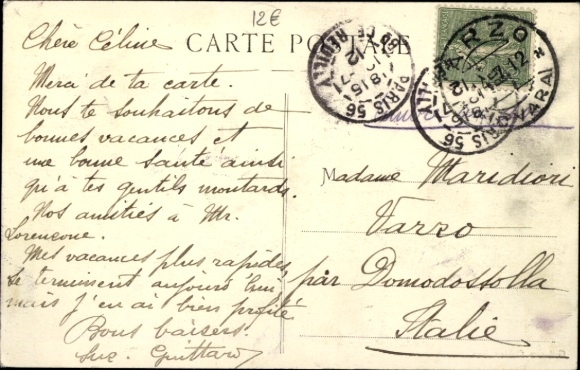 12€
CARTE POSTALE
Chère Céline
Merci de ta carte.
Nous te souhaitons de
bonnes vacances et
une bonne santé ainsi
qu'à tes gentils moutards.
Nos amitiés à Mr.
Lorenzone.
Mes vacances plus rapides,
se terminent aujourd'hui
mais j'en ai bien profité
Bons baisers.
Suz. Guittard
Madame Maridiori
Varzo
par Domodossolla
Italie
PARIS 56
VARZO
NOVARA
PARIS 56